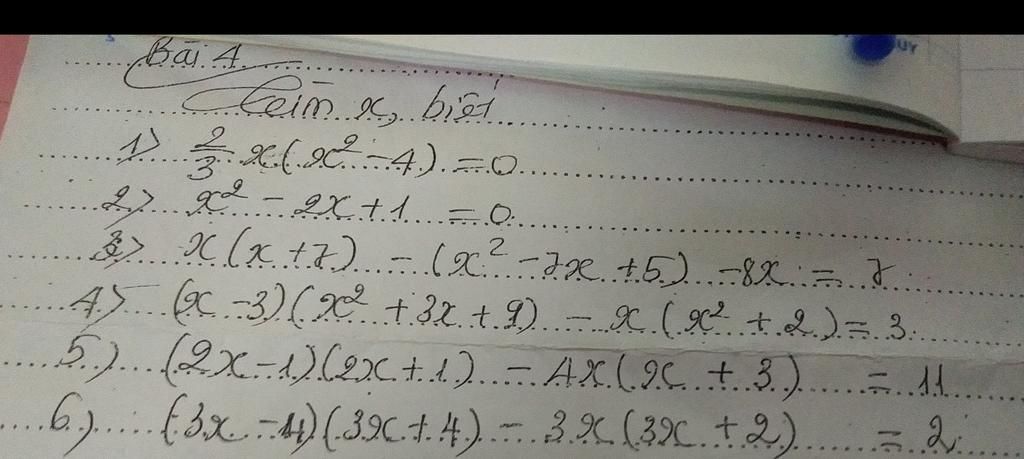 Bài 4
Tìm x, biết
1) 2/3 x(x² - 4) = 0
2) x² - 2x + 1 = 0
3) x(x + 7) - (x² - 7x + 5) - 8x = 7
4) (x - 3)(x² + 3x + 9) - x(x² + 2) = 3
5) (2x - 1)(2x + 1) - 4x(x + 3) = 11
6) (3x - 4)(3x + 4) - 3x(3x + 2) = 2